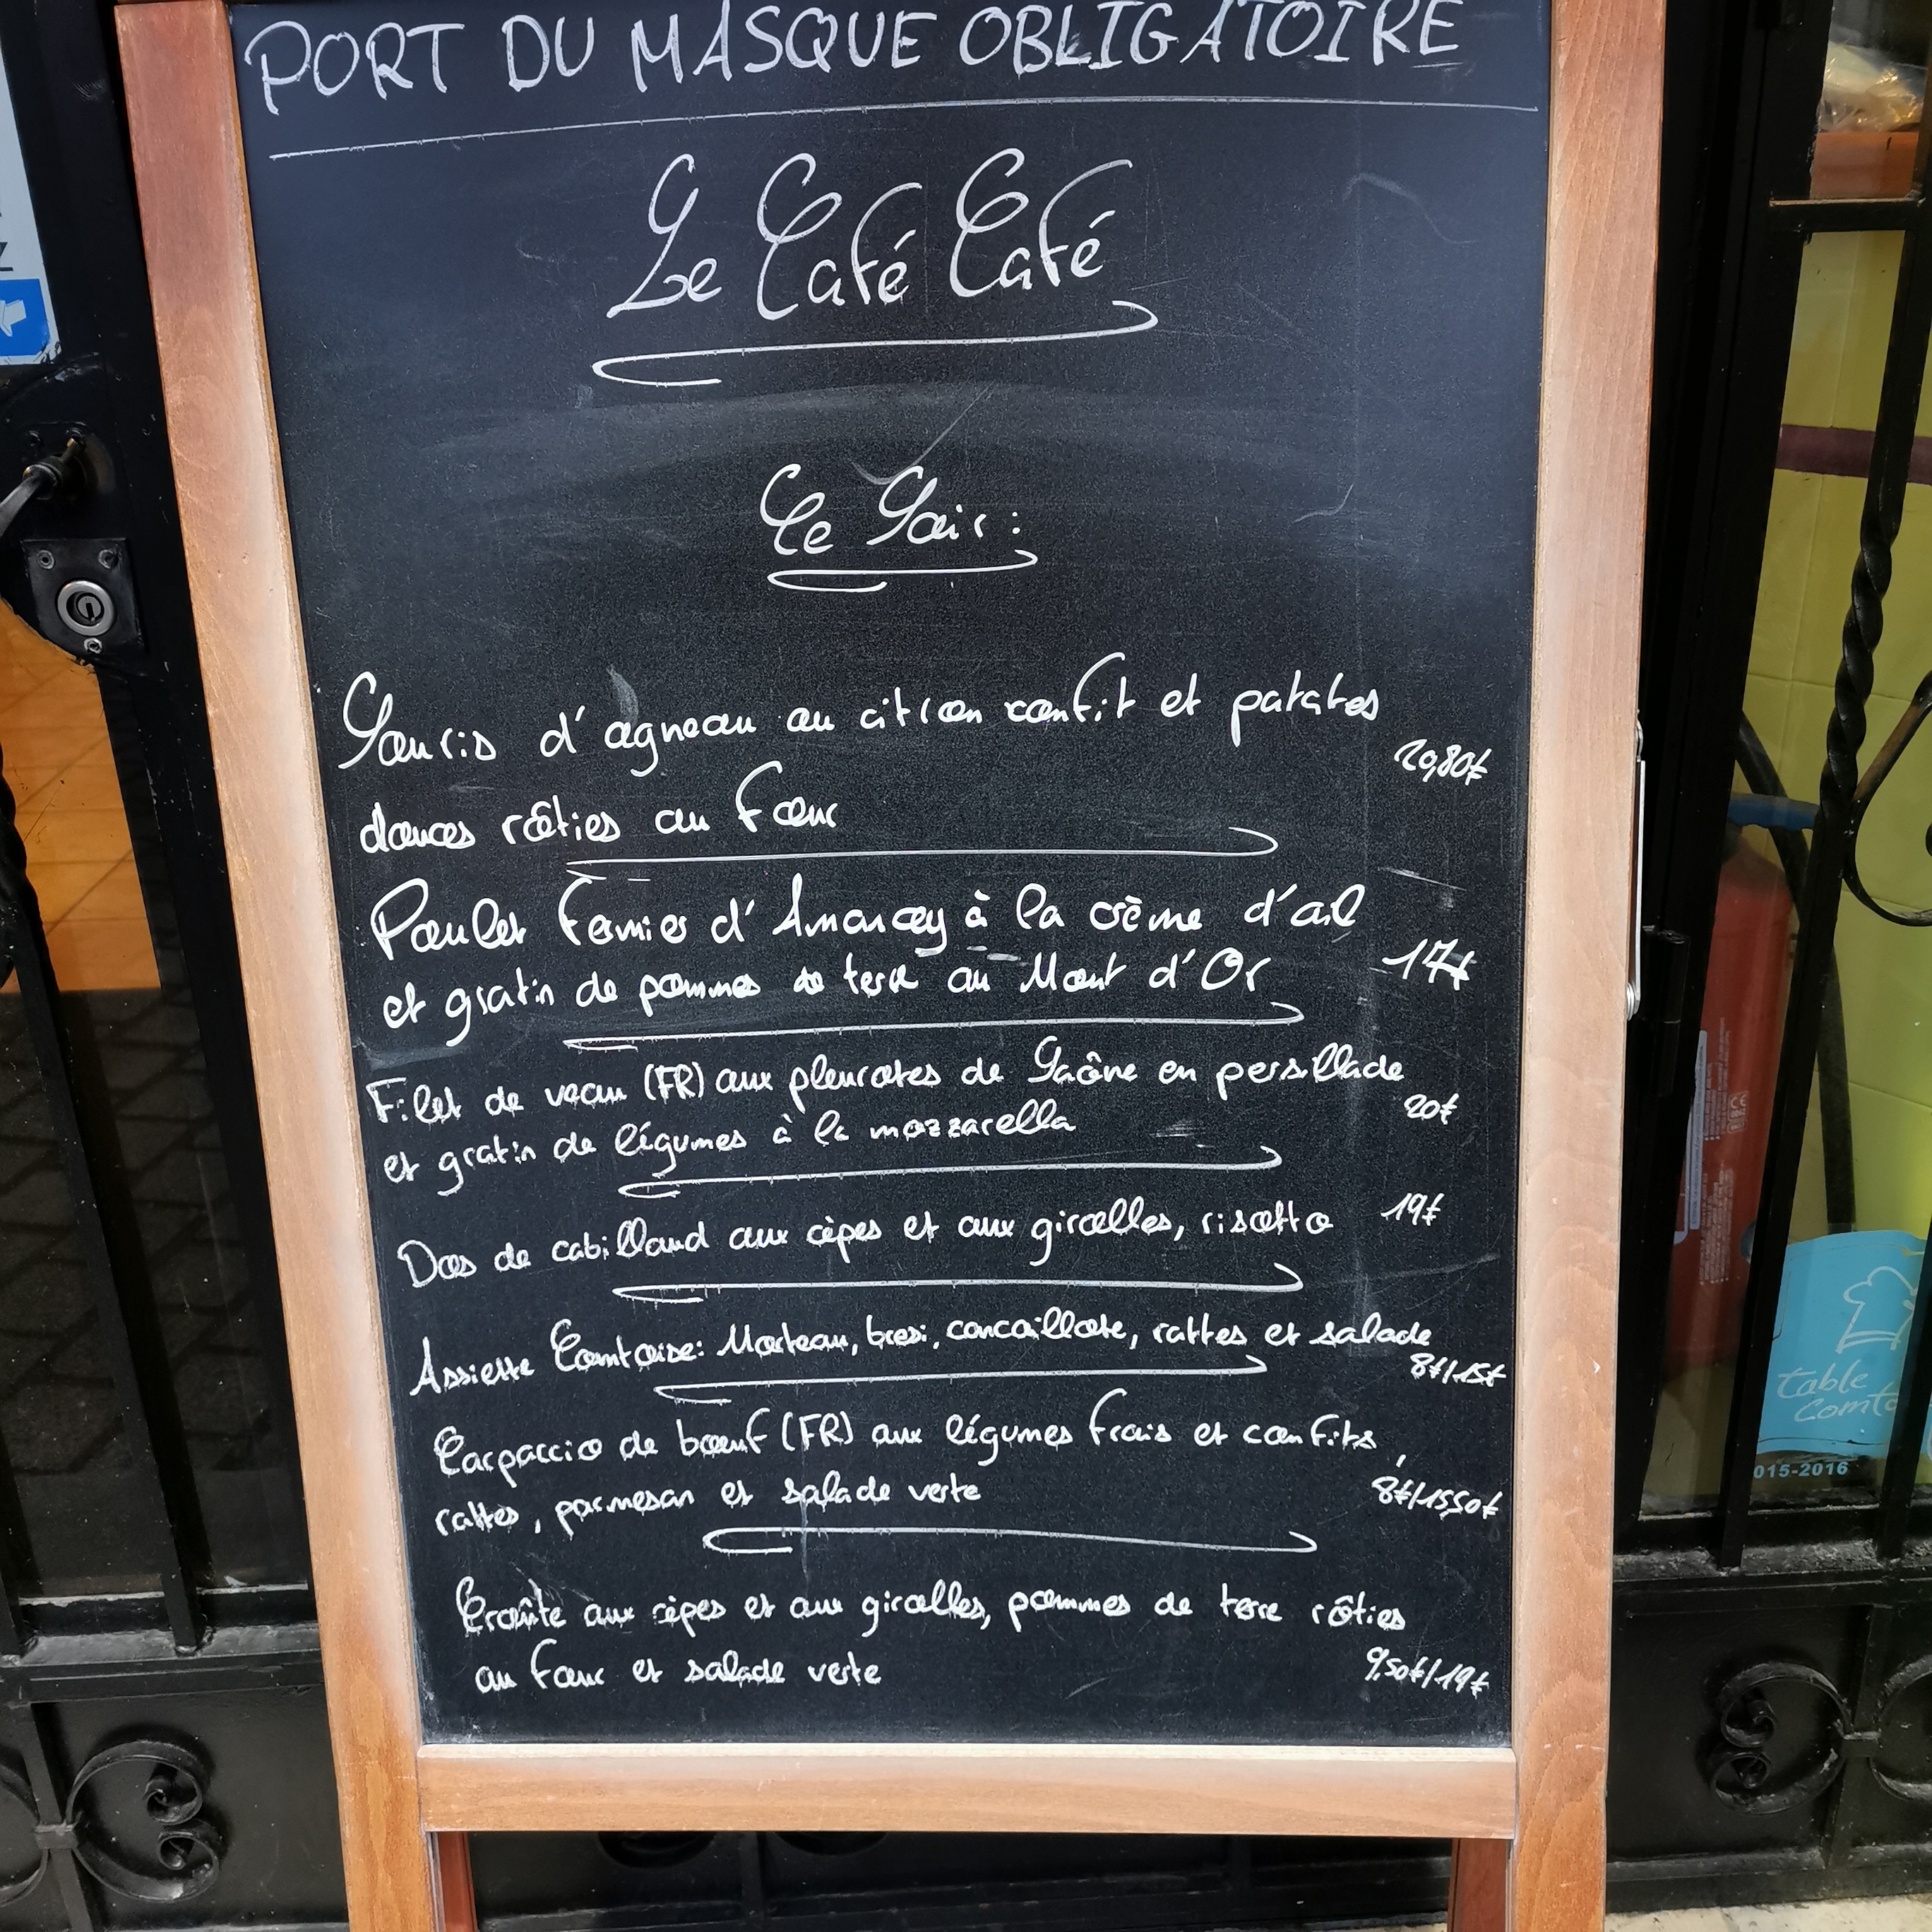 PORT DU MASQUE OBLIGATOIRE
Le Café Café
Ce Soir :
Souris d'agneau au citron confit et patates
20,80€
douces rôties au four
Poulet fermier d'Amancey à la crème d'ail
17€
et gratin de pommes de terre au Mont d'Or
Filet de veau (FR) aux pleurotes de Saône en persillade
20€
et gratin de légumes à la mozzarella
Dos de cabillaud aux cèpes et aux girolles, risotto 19€
Assiette Comtoise: Morteau, bresi, cancoillote, rattes et salade
8€/15€
Carpaccio de boeuf (FR) aux légumes frais et confits,
rattes, parmesan et salade verte
8€/15,50€
Croûte aux cèpes et aux girolles, pommes de terre rôties
au four et salade verte
9,50€/19€
table
comto
015-2016
Z
CE